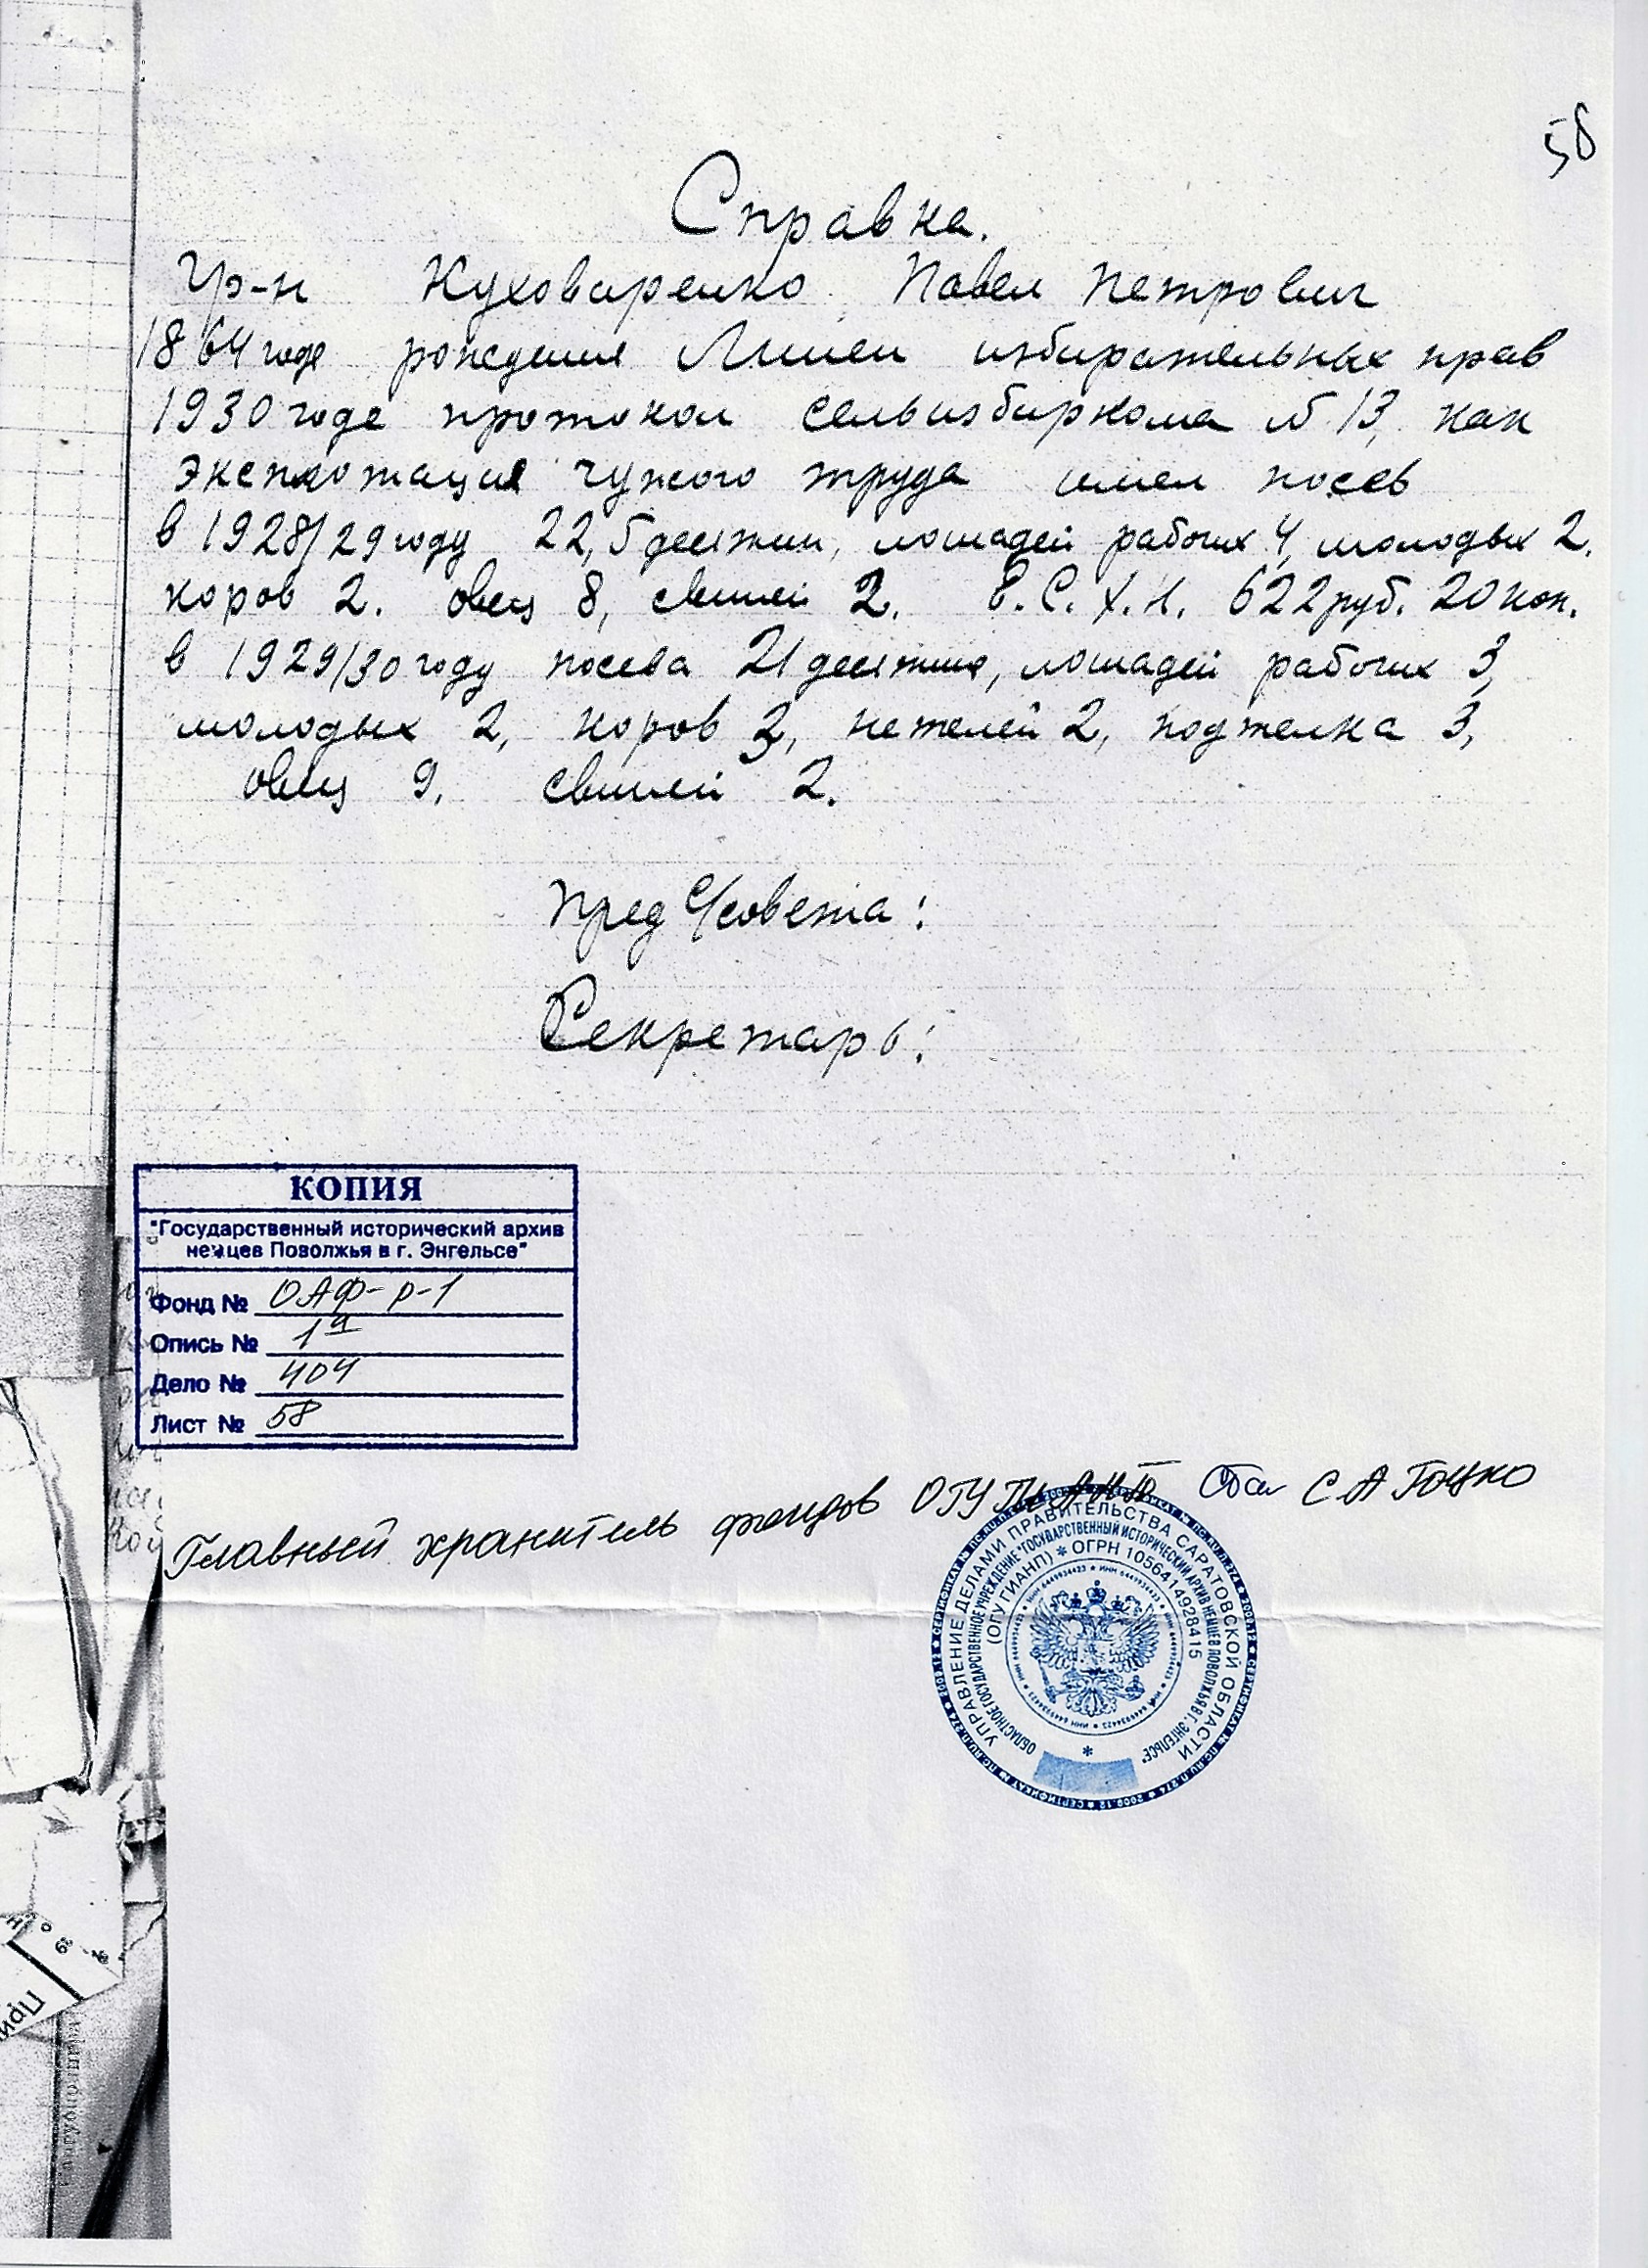 58
Справка.
Гр-н Куховаренко Павел Петрович
1864 года рождения Лишен избирательных прав
1930 годе протокол сельизбиркома № 13, как
эксплотация чужого труда имел посев
в 1928/29 году 22,5 десятин, лошадей рабочих 4, молодых 2,
коров 2. овец 8, свиней 2. Е.С.Х.Н. 622 руб. 20 коп.
в 1929/30 году посева 21 десятина, лошадей рабочих 3,
молодых 2, коров 3, нетелей 2, подтелка 3,
овец 9. свиней 2.
Пред С/совета:
Секретарь:
КОПИЯ
"Государственный исторический архив
немцев Поволжья в г. Энгельсе"
Фонд № ОАФ-р-1
Опись № 1
Дело № 404
Лист № 58
Главный хранитель фондов ОГУ ГИАНП С А Гоцко
УПРАВЛЕНИЕ ДЕЛАМИ ПРАВИТЕЛЬСТВА САРАТОВСКОЙ ОБЛАСТИ
ОБЛАСТНОЕ ГОСУДАРСТВЕННОЕ УЧРЕЖДЕНИЕ "ГОСУДАРСТВЕННЫЙ ИСТОРИЧЕСКИЙ АРХИВ НЕМЦЕВ ПОВОЛЖЬЯ В Г. ЭНГЕЛЬСЕ"
(ОГУ ГИАНП) * ОГРН 1056414928415
При